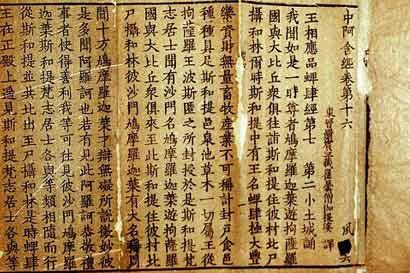 中阿含經卷第十六 風
東晉罽賓三藏瞿曇僧伽提婆譯
王相應品蜱肆經第七 第二小土城誦
我聞如是一時尊者鳩摩羅迦葉遊拘薩羅
國與大比丘衆俱往詣斯和提住彼村北尸
攝和林爾時斯和提中有王名蜱肆極大豐
樂資財無量畜牧產業不可稱計封戶食邑
種種具足斯和提邑泉池草木一切屬王從
拘薩羅王波斯匿之所封授於是斯和提梵
志居士聞有沙門名鳩摩羅迦葉遊拘薩羅
國與大比丘衆俱來至此斯和提住彼村北
尸攝和林彼沙門鳩摩羅迦葉有大名稱周
聞十方鳩摩羅迦葉才辯無礙所說微妙彼
是多聞阿羅訶也若有見此阿羅訶恭敬禮
事者快得善利我等可往見彼沙門鳩摩羅
迦葉斯和提梵志居士各與等類相隨而行
從斯和提並共北出至尸攝和林是時蜱肆
王在正殿上遙見斯和提梵志居士各與等